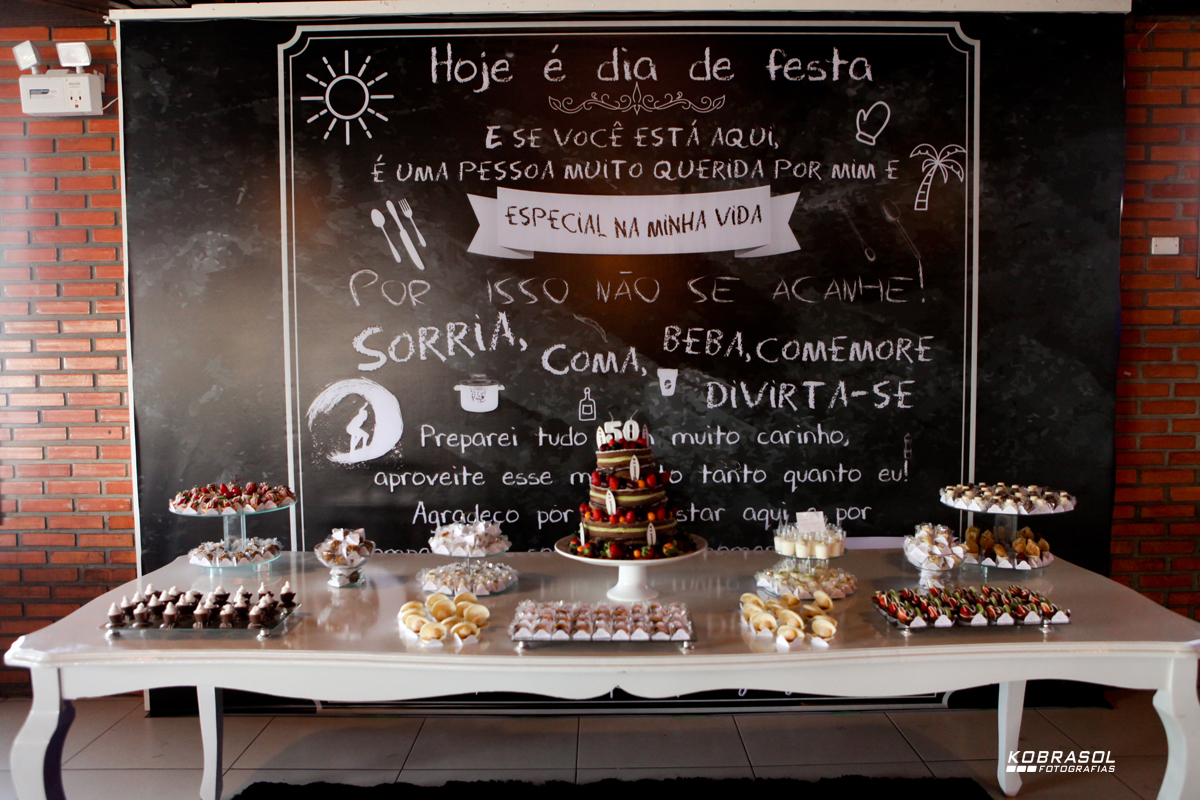 Hoje é dia de festa
E SE VOCÊ ESTÁ AQUI,
É UMA PESSOA MUITO QUERIDA POR MIM E
ESPECIAL NA MINHA VIDA
POR ISSO NÃO SE ACANHE!
SORRIA, COMA, BEBA, COMEMORE
DIVIRTA-SE
Preparei tudo muito carinho,
aproveite esse tanto quanto eu!
Agradeço por aqui e por
50
KOBRASOL
FOTOGRAFIAS